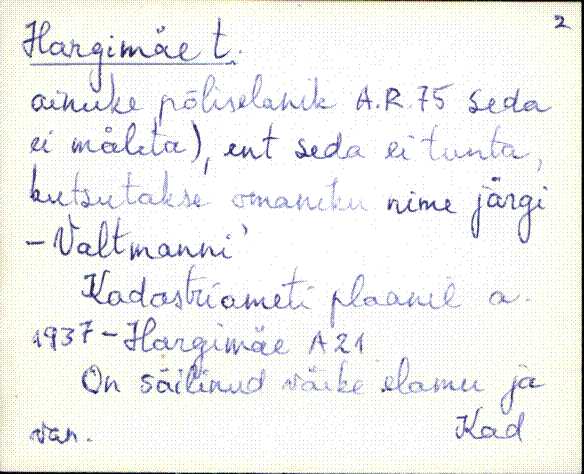 2
Hargimäe t.
ainuke põliselanik A.R.75 seda
ei mäleta), ent seda ei tunta,
kutsutakse omaniku nime järgi
- Valtmanni
Kadastriameti plaanil a.
1937 - Hargimäe A21
On säilinud väike elamu ja
van. Kad